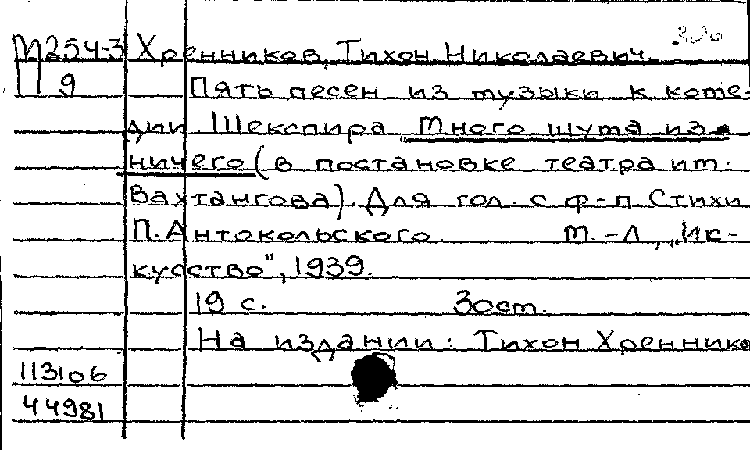 М254-3 Хренников, Тихон Николаевич.
П9 Пять песен из музыки к коме-
дии Шекспира Много шума из
ничего (в постановке театра им.
Вахтангова). Для гол. с ф-п. Стихи
П. Антокольского. М.-Л., „Ис-
кусство", 1939.
19 с. 30см.
На издании: Тихон Хреннико
113106
44981